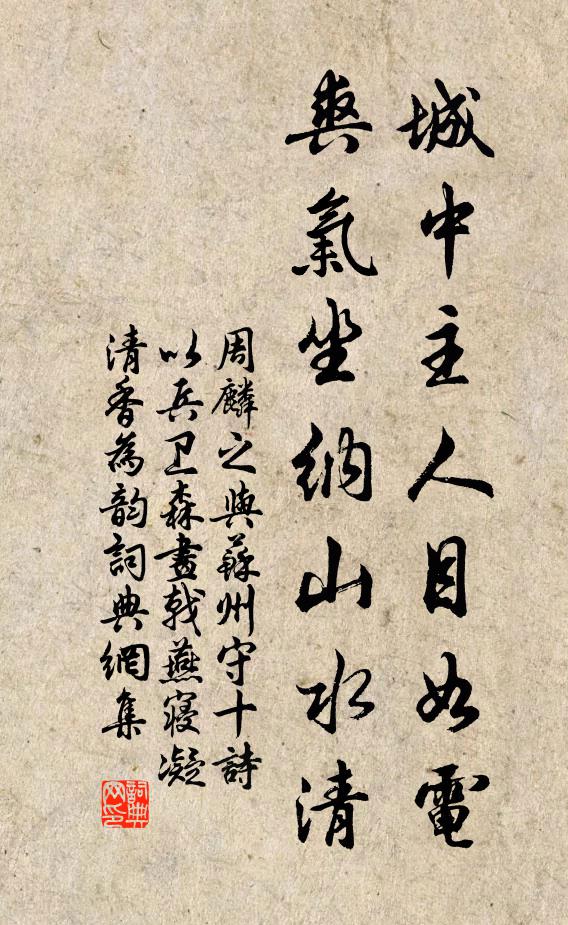 城中主人目如電
爽氣坐納山水清
周麟之與蘇州守十詩
以兵卫森畫戟燕寢凝
清香為韵詞典網集
詞典
网印